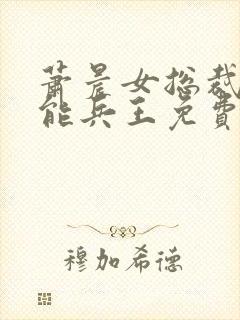 萧晨女总裁
能兵王免費
穆加希德